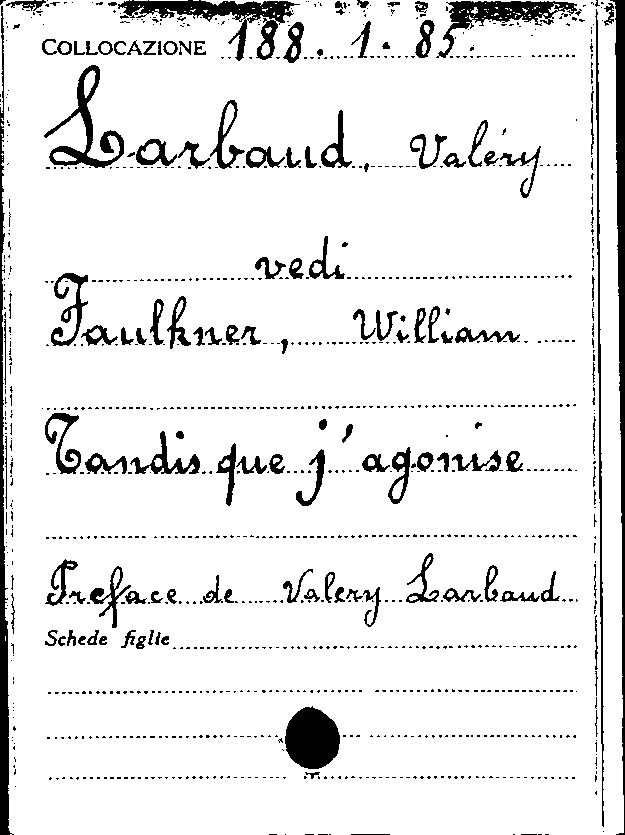 COLLOCAZIONE 188. 1. 85.
Larbaud, Valéry
vedi
Faulkner, William
Tandis que j'agonise
Preface de Valery Larbaud
Schede figlie